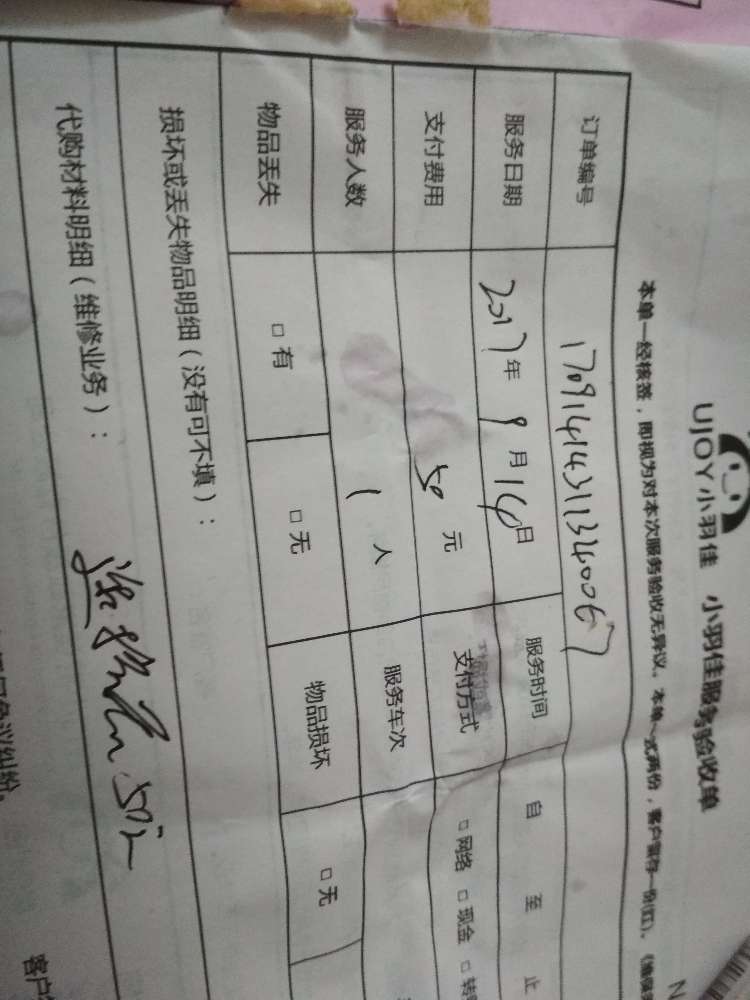 UJOY小羽佳 小羽佳服务验收单
本单一经核签，即视为对本次服务验收无异议。本单一式两份，客户留存一份(红)。
订单编号 17091414311340067
服务日期 2017年9月14日 服务时间 自 至 止
支付费用 50元 支付方式 □网络 □现金 □转
服务人数 1人 服务车次
物品丢失 □有 □无 物品损坏 □无
损坏或丢失物品明细（没有可不填）：
代购材料明细（维修业务）：
50元
纠纷。
客户